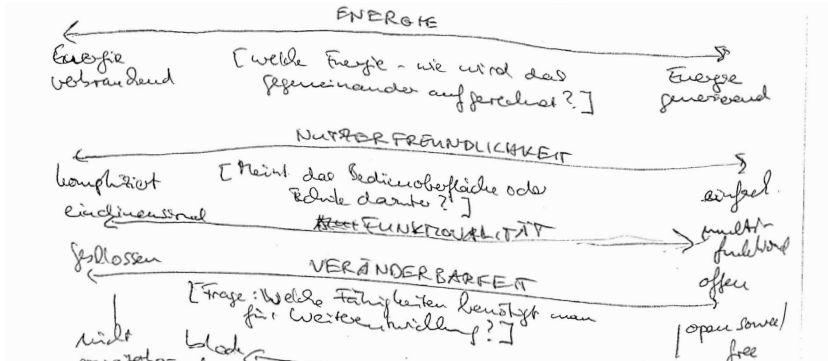 ENERGIE
Energie verbrauchend
[welche Energie - wie wird das
gegeneinander aufgerechnet?]
Energie generierend
NUTZERFREUNDLICHKEIT
kompliziert
[Meint das Bedienoberfläche oder
Technik darunter?]
einfach
eindimensional
FUNKTIONALITÄT
multi-
funktional
geschlossen
VERÄNDERBARKEIT
offen
[Frage: Welche Fähigkeiten benötigt man
für Weiterentwicklung?]
nicht
open source/
free